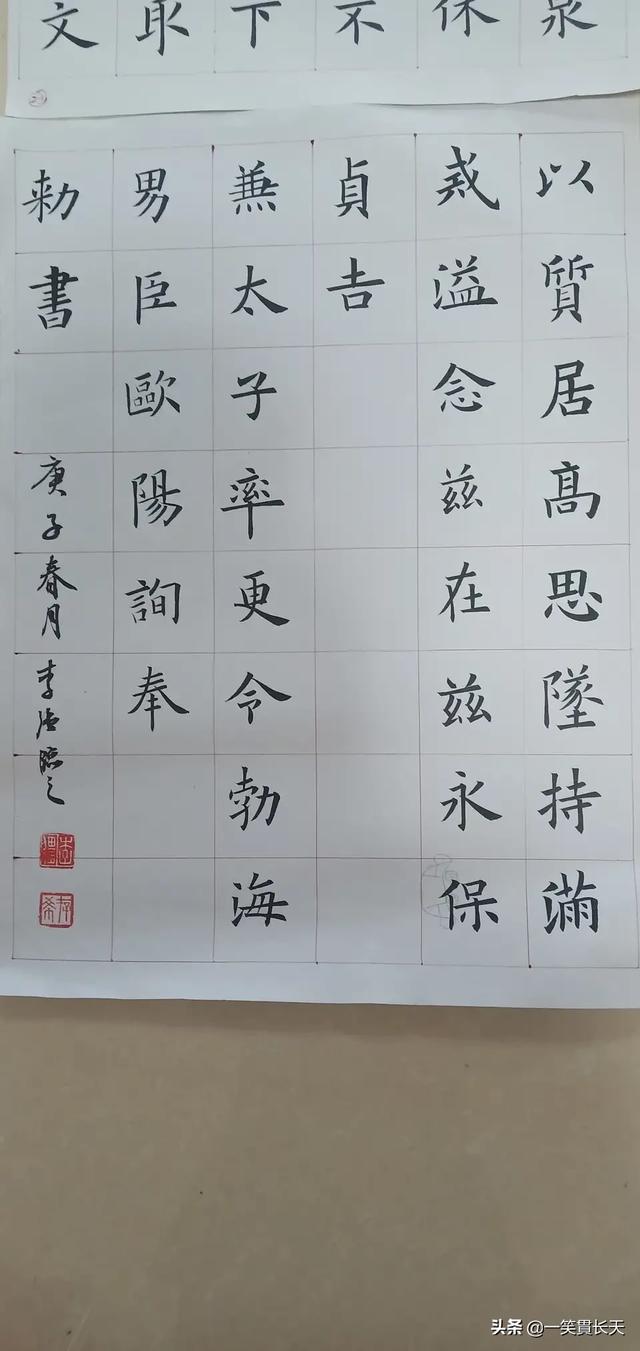 泉
保
不
下
取
文
以質居髙思墜持滿
戒溢念兹在兹永保
貞吉
兼太子率更令勃海
男臣歐陽詢奉
勑書
庚子春月李臨之
头条 @一笑貫长天